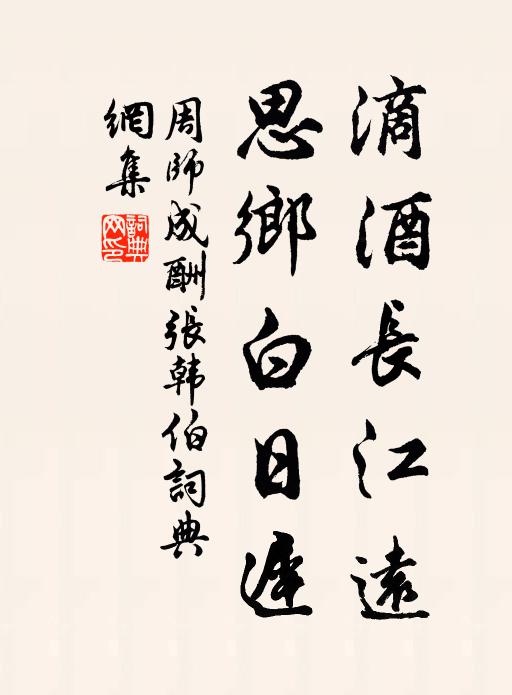 滴酒長江遠
思鄉白日遲
周師成酬張韩伯詞典
網集
詞典網印